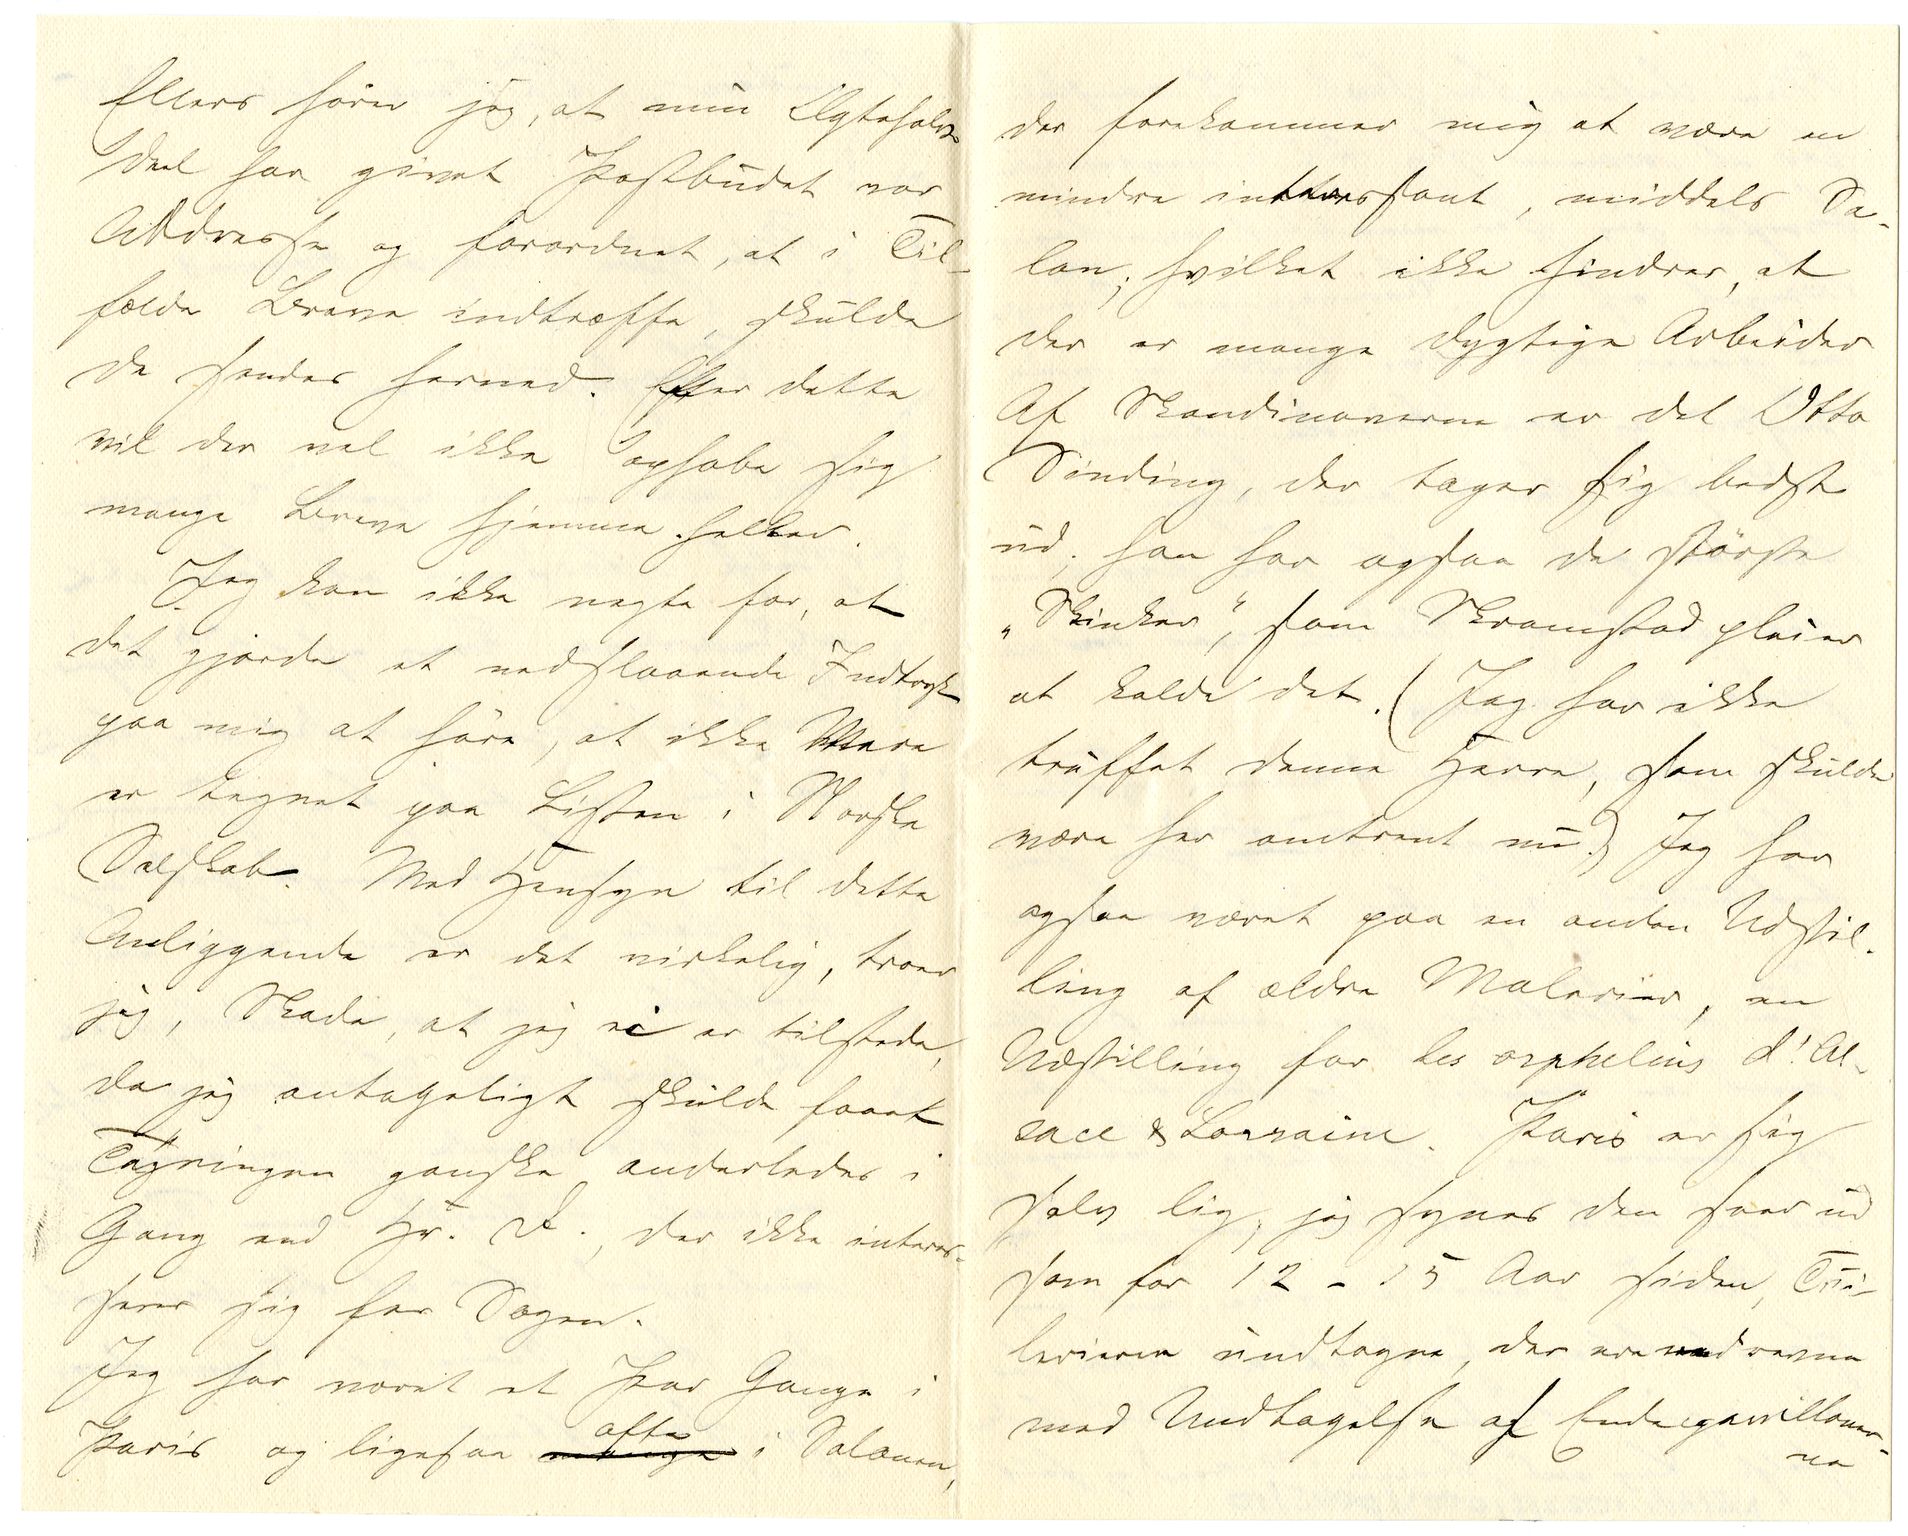 Ellers hører jeg, at min Ægtehalv-
deel har givet Postbudet vor
Addresse og forordnet, at i Til-
fælde Breve indtræffe, skulde
de sendes herned. Efter dette
vil der vel ikke ophobe sig
mange Breve hjemme heller.
Jeg kan ikke negte for, at
det gjorde et nedslaaende Indtryk
paa mig at høre, at ikke Mere
er tegnet paa Listen i Norske
Selskab. Med Hensyn til dette
Anliggende er det virkelig, troer
jeg, Skade, at jeg ei er tilstede,
da jeg antageligt skulde faaet
Tegningen ganske anderledes i
Gang end Hr. D., der ikke interes-
serer sig for Sagen.
Jeg har været et Par Gange i
Paris og ligesaa ofte i Salonen,
der forekommer mig at være en
mindre interessant, middels Sa-
lon; hvilket ikke hindrer, at
der er mange dygtige Arbeider
Af Skandinaverne er det Otto
Sinding, der tager sig bedst
ud; han har ogsaa de største
„Skinker“, som Skramstad pleier
at kalde det. (Jeg har ikke
truffet denne Herre, som skulde
være her omtrent nu.) Jeg har
ogsaa været paa en anden Udstil-
ling af ældre Malerier, en
Udstilling for les orphelins d'Al-
sace & Lorraine. Paris er sig
selv lig; jeg synes den seer ud
som for 12 - 15 Aar siden, Tui-
lerierne undtagne, der ere nedrevne
med Undtagelse af Endepavilloner-
ne